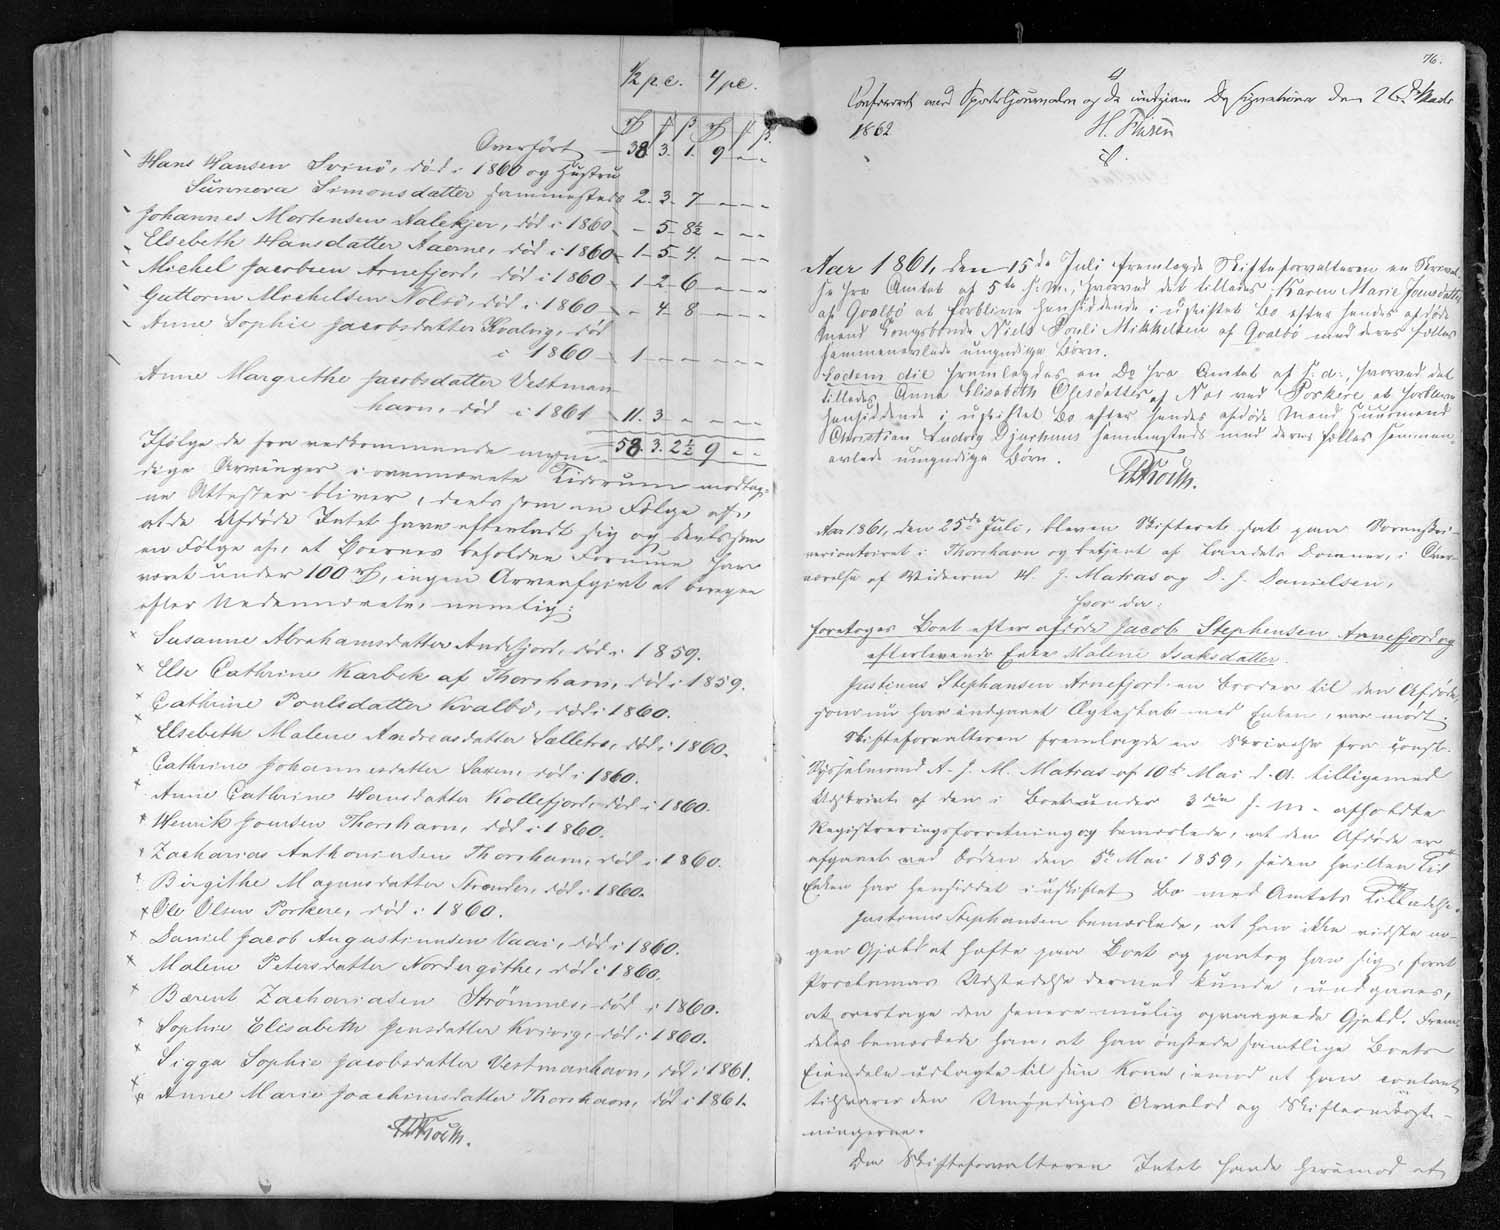 1/2 p.c. 4 p.c.
Overført — 38 3. 1. 9 — —
Hans Hansen Svinø, død i 1860 og Hustru
Sunneva Simonsdatter sammesteds 2. 3. 7 — — —
Johannes Mortensen Aalekjer, død i 1860 — 5 8½ — — —
Elsebeth Hansdatter Aaerne, død i 1860 1 — 5 — 4. — — —
Michel Jacobsen Arnefjord, død i 1860 — 1 — 2 — 6 — — —
Guttorm Michelsen Nolsø, død i 1860 — — 4 — 8 — — —
Anne Sophie Jacobsdatter Kvalvig, død
i 1860 — 1 — — — — —
Anne Margrethe Jacobsdatter Vestman
havn, død i 1861 — 11. 3 — — — —
58. 3. 2½ 9 — —
Ifølge de fra vedkommende myn-
dige Arvinger i ovennævnte Tidsrum modtag-
ne Attester bliver, deels som en Følge af,
at de Afdøde Intet have efterladt sig og deels som
en Følge af, at Boernes beholdne Formue har
været under 100 rd, ingen Arveafgivt at beregne
efter Nedennævnte, nemlig:
Susanne Abrahamsdatter Andefjord, død i 1859.
Else Cathrine Karbek af Thorshavn, død i 1859.
Cathrine Poulsdatter Kvalbø, død i 1860.
Elsebeth Malene Andreasdatter Selletræ, død i 1860.
Cathrine Johannesdatter Saxen, død i 1860.
Anne Cathrine Hansdatter Kollefjord, død i 1860.
Henrik Joensen Thorshavn, død i 1860.
Zacharias Anthoniesen Thorshavn, død i 1860.
Birgithe Magnusdatter Strender, død i 1860.
Ole Olsen Porkere, død i 1860.
Daniel Jacob Augustinusen Vaai, død i 1860.
Malene Petersdatter Nordergøthe, død i 1860.
Bærent Zachariasen Strømnes, død i 1860.
Sophie Elisabeth Jensdatter Kvivig, død i 1860.
Sigga Sophie Jacobsdatter Vestmanhavn, død i 1861.
Anne Marie Joachimsdatter Thorshavn, død i 1861.
76.
Confereret med Sporteljournalen og de indgivne Designationer den 26de
1862
Aar 1861, den 15de Juli fremlagde Skifteforvalteren en Skrivel-
se fra Amtet af 5te s. M., hvorved det tillades Karen Marie Jensdatter
af Qvalbø at forblive hensiddende i uskiftet Bo efter hendes afdøde
Mand Kongsbonde Niels Pouli Mikkelsen af Qvalbø med deres fælles
sammenavlede umyndige Børn.
Eodem die fremlagdes en Do fra Amtet af s. d., hvorved det
tillades Anna Elisabeth Olesdatter af Nes ved Porkere at forblive
hensiddende i uskiftet Bo efter hendes afdøde Mand Huusmand
Christian Ludvig Djurhuus sammesteds med deres fælles sammen-
avlede umyndige Børn.
Aar 1861, den 25de Juli, blev en Skifteret sat paa Sorenskri-
vercontoiret i Thorshavn og betjent af Landets Dommer, i Over-
værelse af Vidnerne H. J. Matras og D. J. Danielsen,
hvor da:
foretoges Boet efter afdøde Jacob Stephensen Arnefjord og
efterlevende Enke Malene Isaksdatter.
Justinus Stephansen Arnefjord en Broder til den Afdøde,
som nu har indgaaet Ægteskab med Enken, var mødt.
Skifteforvalteren fremlagde en Skrivelse fra const.
Sysselmand A. J. M. Matras af 10de Mai d. A. tilligemed
Udskrivt af den i Boet under 3die s. M. afholdte
Registreringsforretning og bemærkede, at den Afdøde er
afgaaet ved Døden den 5te Mai 1859, siden hvilken Tid
Enken har hensiddet i uskiftet Bo med Amtets Tilladelse.
Justinus Stephansen bemærkede, at han ikke vidste no-
gen Gjæld at hæfte paa Boet og paatog han sig, forat
Proclamas Udstedelse dermed kunde undgaaes,
at overtage den senere mulig opdagende Gjæld. Frem-
deles bemærkede han, at han ønskede samtlige Boets
Eiendele udlagte til sin Kone, imod at han contant
tilsvarer den Umyndiges Arvelod og Skifteomkost-
ningerne.
Da Skifteforvalteren Intet havde herimod at